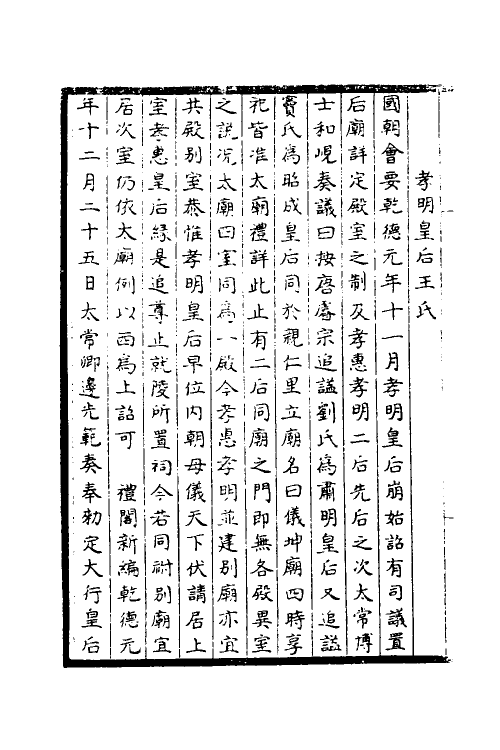 孝明皇后王氏
國朝會要乾德元年十一月孝明皇后崩始詔有司議置
后廟詳定殿室之制及孝惠孝明二后先后之次太常博
士和峴奏議曰按唐睿宗追謚劉氏為肅明皇后又追謚
竇氏為昭成皇后同於親仁里立廟名曰儀坤廟四時享
祀皆准太廟禮詳此止有二后同廟之門即無各殿異室
之說况太廟四室同為一殿今孝惠孝明並建別廟亦宜
共殿別室恭惟孝明皇后早位内朝母儀天下伏請居上
室孝惠皇后緣是追尊止就陵所置祠今若同祔別廟宜
居次室仍依太廟例以西為上詔可　禮閣新編乾德元
年十二月二十五日太常卿邊光範奏奉勑定大行皇后